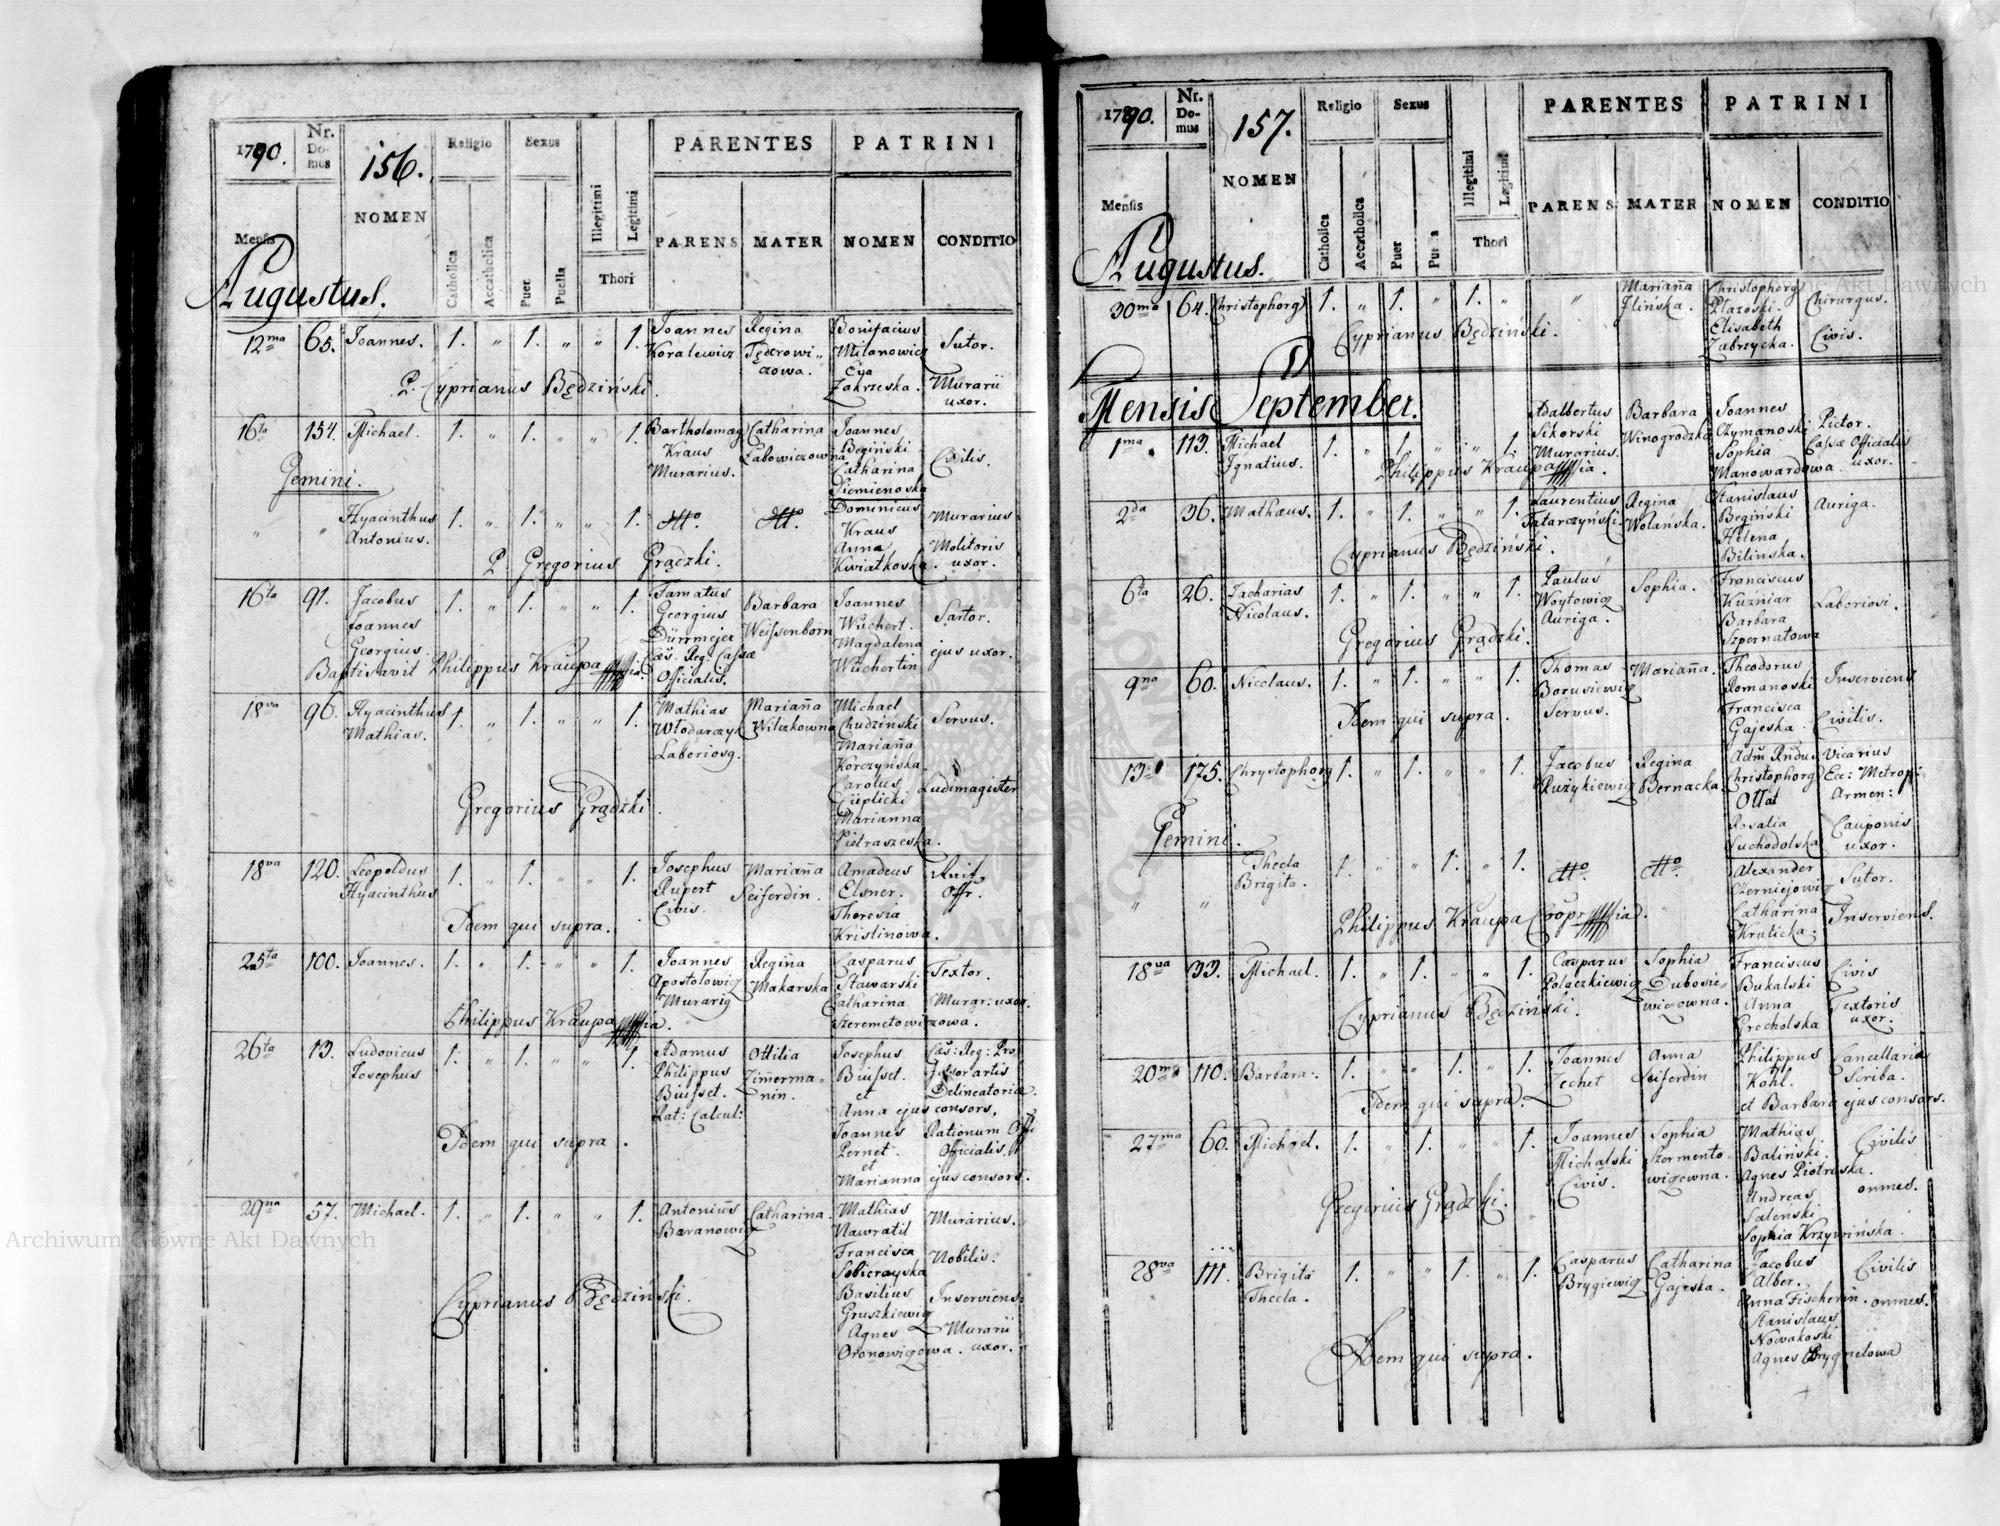 1790.
Nr. Do-mus
156.
NOMEN
Religio
Sexus
Illegitimi
Legitimi
Thori
PARENTES
PATRINI
Mensis
Catholica
Accatholica
Puer
Puella
PARENS
MATER
NOMEN
CONDITIO
Augustus.
12ma 65. Joannes. 1. " 1. " " 1. Joannes Regina Bonifacius Sutor.
Koralewicz Milanowicz
czowa. Eva
P. Cyprianus Będziński. Zakrzeska. Murarii
uxor.
16ta 154. Michael. 1. " 1. " " 1. Bartholomaeg Catharina Joannes
Kraus Łabowiczowna Begiński Civilis.
Murarius. Catharina
Gemini. Siemienoska
" " Hyacinthus 1. " 1. " " 1. Dtto. Dtto. Dominicus Murarius
Antonius. Kraus
Anna Molitoris
P. Gregorius Grądzki. Kwiatkoska. uxor.
16ta 91. Jacobus 1. " 1. " " 1. Famatus Barbara Joannes Sartor.
Joannes Georgius Weissenborn Wuchert.
Georgius. Dürrmejer Magdalena ejus uxor.
Baptisavit Philippus Kraupa Cæs. Reg: Cassæ Wuchertin
Officialis.
18va 96. Hyacinthus 1. " 1. " " 1. Mathias Mariaña Michael Servus.
Mathias. Włodarczyk Wilczkowna Chudziński
Laboriosg. Mariaña
Korczyńska.
Carolus Ludimagister
Gregorius Grądzki. Cieplicki
Marianna
Pietraszeska.
18va 120. Leopoldus 1. " 1. " " 1. Josephus Mariaña Amadeus
Hyacinthus Rupert Seiferdin. Elsner. Offr.
Civis. Theresia
Idem qui supra. Kristinowa.
25ta 100. Joannes. 1. " 1. " " 1. Joannes Regiña Casparus Textor.
Apostołowicz Makarska Stawarski
Murarig Catharina Murar: uxor.
Philippus Kraupa Szeremetowiczowa.
26ta 13. Ludovicus 1. " 1. " " 1. Adamus Ottilia Josephus Cæs: Reg: Pro
Josephus Philippus Zim̃erma- Buisset. fessor artis
Buisset. nin. et Delineatoriæ.
Rat: Calcul: Anna ejus consors,
Joannes Rationum Offi
Idem qui supra. Pernet. Officialis.
et
Marianna ejus consors.
29na 57. Michael. 1. " 1. " " 1. Antonius Catharina. Mathias Murarius.
Baranowicz Nawratil
Francisca Nobilis.
Sobierayska
Basilius Inserviens.
Cyprianus Będziński. Gruszkiewicz
Agnes Murarii
Oronowiczowa. uxor.
1790.
Nr. Do-mus
157.
NOMEN
Religio
Sexus
Illegitimi
Legitimi
Thori
PARENTES
PATRINI
Mensis
Catholica
Accatholica
Puer
PARENS
MATER
NOMEN
CONDITIO
Augustus.
30ma 64. Christophorg 1. " 1. " 1. " " Mariaña Christophorg Chirurgus.
Jlińska. Płazoski.
Cyprianus Będziński. Elisabeth Civis.
Zabrzycka.
Mensis September.
1ma 113. Michael 1. " 1. " " 1. Adalbertus Barbara Joannes Pictor.
Ignatius. Sikorski Winogrodzka Czymanoski Cassæ Officialis
Murarius. Sophia uxor.
Philippus Kraupa Manowardowa.
2da 36. Mathæus. 1. " 1. " " 1. Laurentius Regina Stanislaus Auriga.
Tatarczyński. Wolańska. Begiński
Helena
Cyprianus Będziński. Bilińska.
6ta 26. Zacharias 1. " 1. " " 1. Paulus Sophia. Franciscus Laboriosi.
Nicolaus. Woytowicz Kuzniar
Auriga. Barbara
Gregorius Grądzki. Szpernatowa
9na 60. Nicolaus. 1. " 1. " " 1. Thomas Mariaña. Theodorus Inserviens
Borusiewicz Romanoski
Servus. Francisca
Idem qui supra. Gajeska. Civilis.
13 175. Chrystophorg 1. " 1. " " 1. Jacobus Regina Adm̃ Rñdus Vicarius
Ruzykiewicz Bernacka. Christophorg Ecc: Metropl:
Ottat Armen:
Rosalia Cauponis
Gemini. Suchodolska uxor.
" " Thecla 1. " " 1. " 1. Dtto. Dtto. Alexander Sutor.
Brigita. Czerniejowicz
Catharina Inserviens.
Philippus Kraupa Krulicka.
18va 33. Michael. 1. " 1. " " 1. Casparus Sophia Franciscus Civis
Polaczkiewicz Dubosie- Bukalski
wiczowna. Anna Textoris
Cyprianus Będziński. Grocholska uxor.
20ma 110. Barbara. 1. " " 1. " 1. Joannes Anna Philippus Cancellariæ
Zechet Seiferdin Kohl. Scriba.
Idem qui supra. et Barbara ejus consors.
27ma 60. Michael. 1. " 1. " " 1. Joannes Sophia Mathias Civilis
Michalski Szermento- Baliński.
Civis. wiczowna. Agnes Piotroska.
Gregorius Grądzki. Andreas omnes.
Salenski
Sophia Krzywińska.
28va 111. Brigita 1. " " 1. " 1. Casparus Catharina Jacobus Civilis
Thecla. Brygiewicz Gajeska. Alber.
Anna Fischerin. omnes.
Stanislaus
Idem qui supra. Nowakoski
Agnes Brygnelowa
Archiwum Główne Akt Dawnych